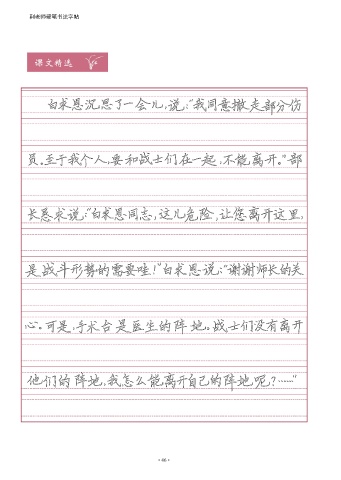 副老师硬笔书法字帖
课文精选
白求恩沉思了一会儿,说:“我同意撤走部分伤
员。至于我个人,要和战士们在一起,不能离开。”部
长恳求说:“白求恩同志,这儿危险,让您离开这里,
是战斗形势的需要哇!”白求恩说:“谢谢师长的关
心。可是,手术台是医生的阵地。战士们没有离开
他们的阵地,我怎么能离开自己的阵地呢?……”